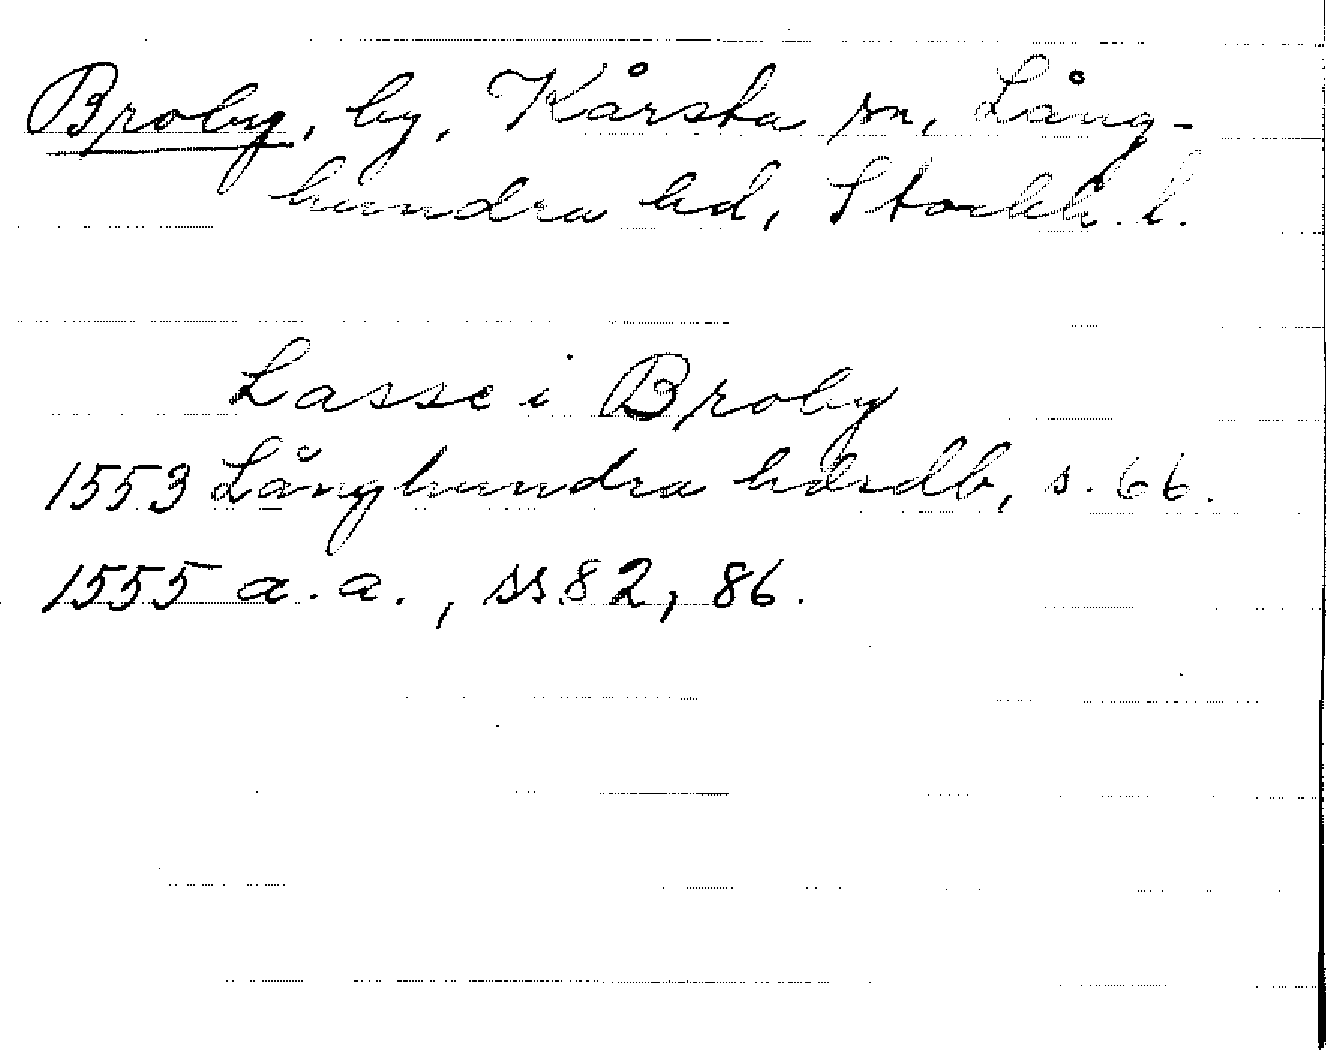 Broby, by, Kårsta sn, Lång-
hundra hd, Stockh. l.
Lasse i Broby
1553 Långhundra hdsdb, s. 66.
1555 a.a., ss 82, 86.